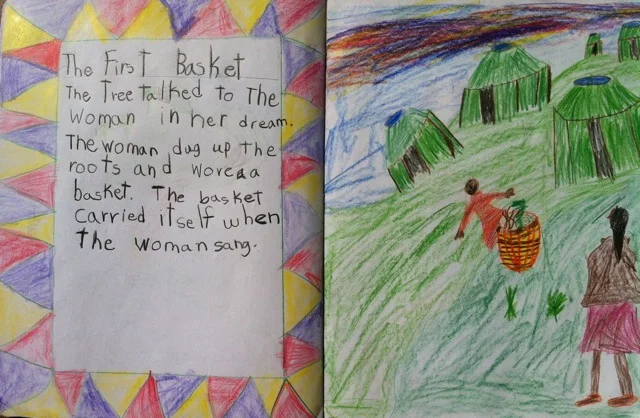 The First Basket
The Tree talked to The
woman in her dream.
The woman dug up the
roots and wove a
basket. The basket
carried itself when
The woman sang.